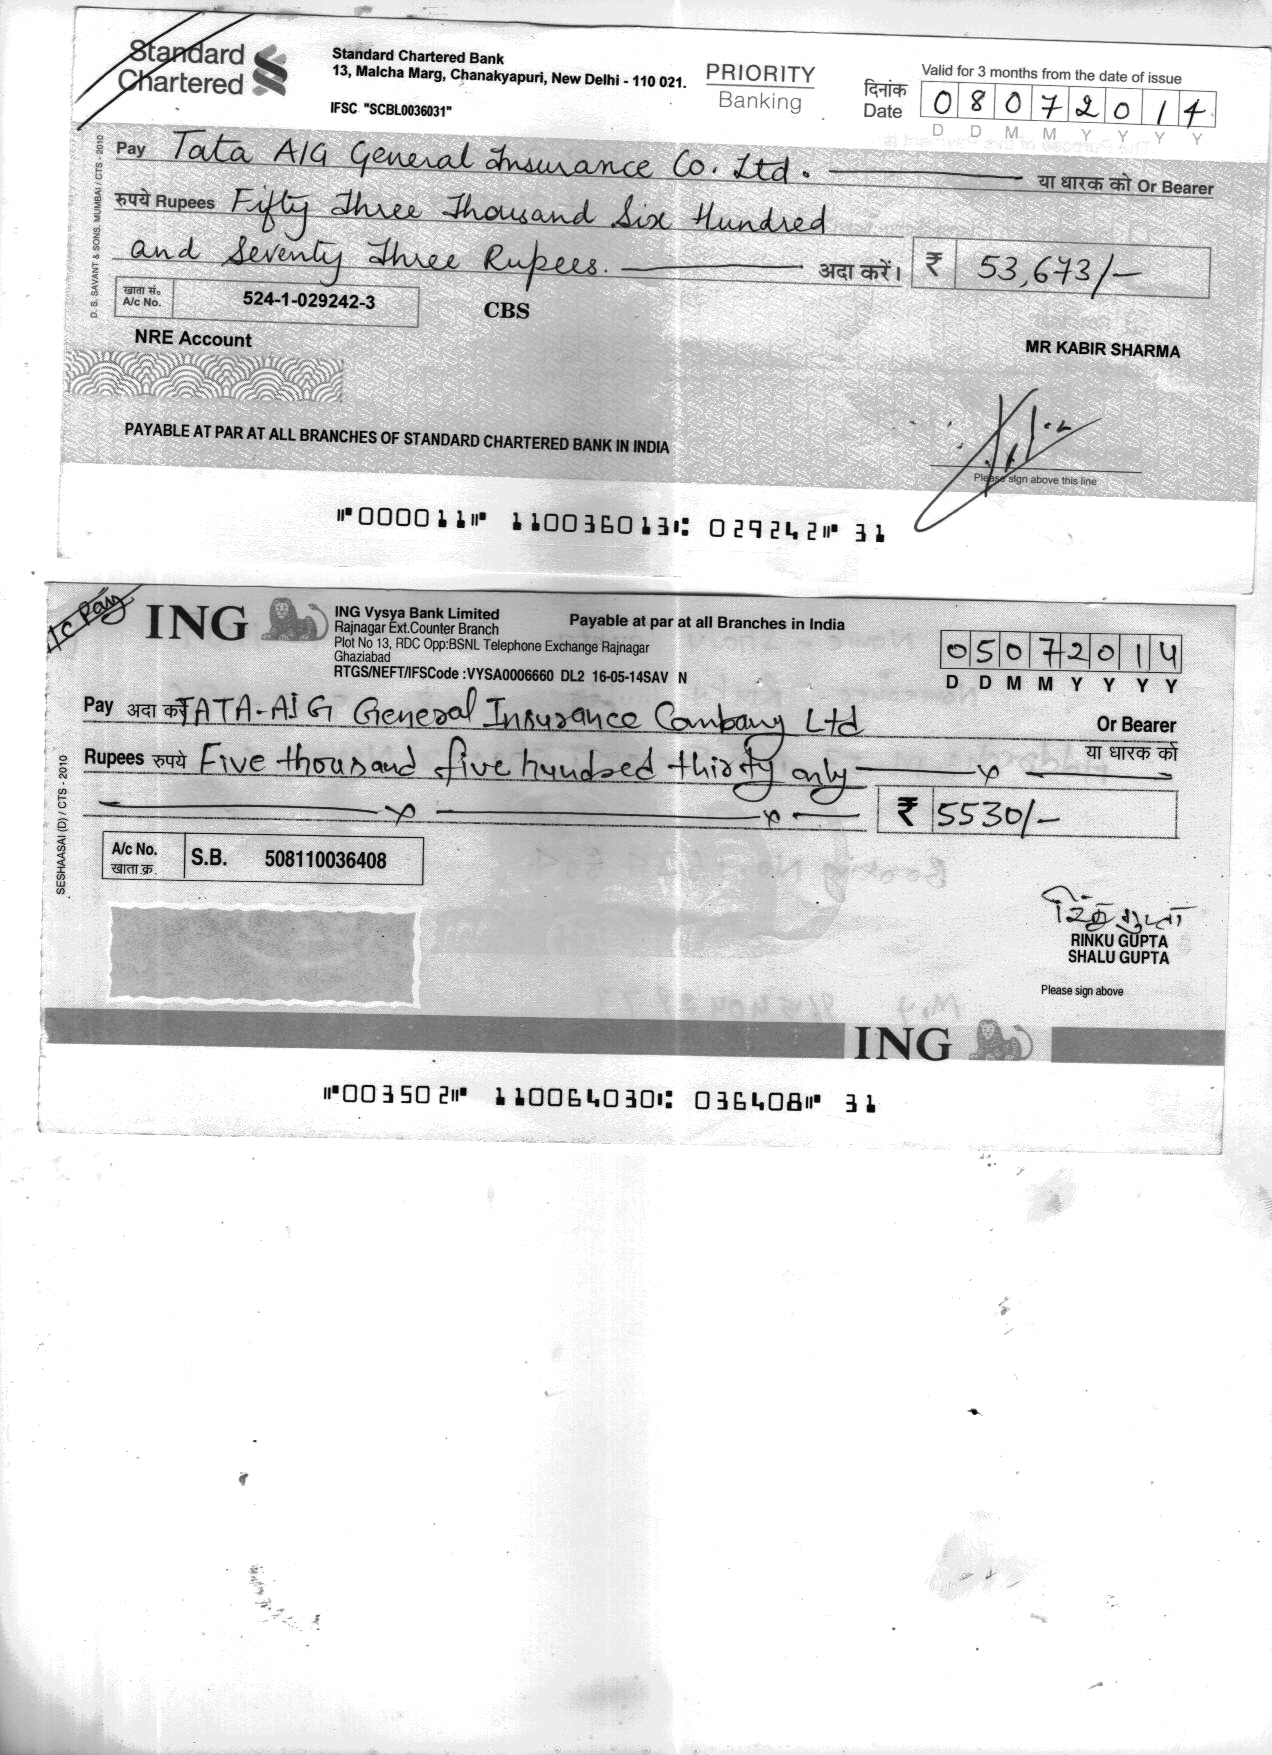 Standard Chartered
Standard Chartered Bank
13, Malcha Marg, Chanakyapuri, New Delhi - 110 021.
IFSC "SCBL0036031"
PRIORITY
Banking
Valid for 3 months from the date of issue
दिनांक
Date 08072014
D D M M Y Y Y Y
Pay Tata AIG General Insurance Co. Ltd. या धारक को Or Bearer
रुपये Rupees Fifty Three Thousand Six Hundred
and Seventy Three Rupees. अदा करें। ₹ 53,673/-
खाता सं.
A/c No. 524-1-029242-3
CBS
NRE Account
MR KABIR SHARMA
PAYABLE AT PAR AT ALL BRANCHES OF STANDARD CHARTERED BANK IN INDIA
Please sign above this line
D. S. SAVANT & SONS, MUMBAI / CTS - 2010
⑈000011⑈ 110036013⑆ 029242⑈ 31
A/c Pay
ING
ING Vysya Bank Limited
Rajnagar Ext.Counter Branch
Plot No 13, RDC Opp:BSNL Telephone Exchange Rajnagar
Ghaziabad
RTGS/NEFT/IFSCode :VYSA0006660 DL2 16-05-14SAV N
Payable at par at all Branches in India
05072014
D D M M Y Y Y Y
Pay अदा करें TATA-AIG General Insurance Company Ltd Or Bearer
या धारक को
Rupees रुपये Five thousand five hundred thirty only
₹ 5530/-
A/c No.
खाता क्र.
S.B. 508110036408
रिंकु गुप्ता
RINKU GUPTA
SHALU GUPTA
Please sign above
SESHAASAI (D) / CTS - 2010
ING
⑈003502⑈ 110064030⑆ 036408⑈ 31